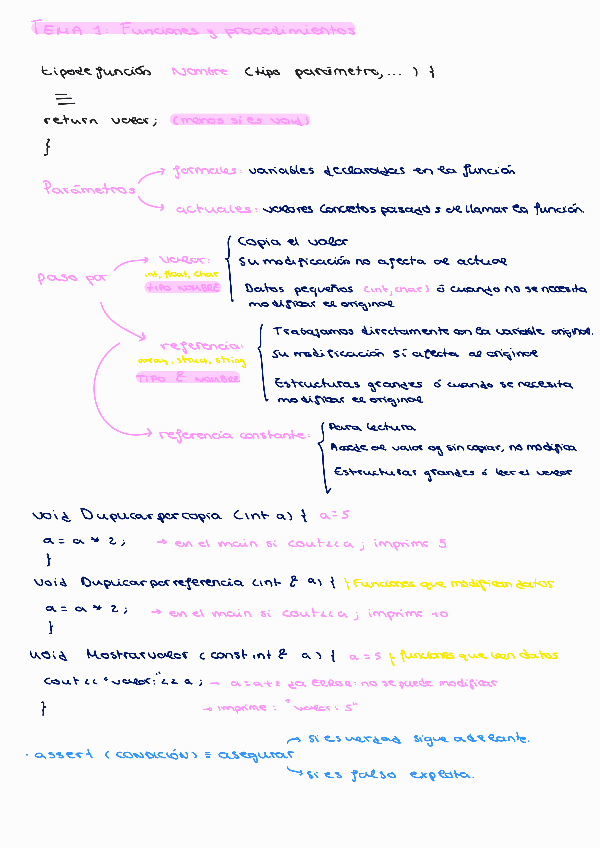 TEMA 1: Funciones y procedimientos
tipodefunción Nombre (tipo parámetro,... ) {
return valor; (menos si es void)
}
Parámetros
formales: variables declaradas en la función
actuales: valores concretos pasados al llamar la función.
paso por
valor:
int, float, char
TIPO NOMBRE
Copia el valor
Su modificación no afecta al actual
Datos pequeños (int, char) ó cuando no se necesita
modificar el original
referencia:
array, struct, string
TIPO & NOMBRE
Trabajamos directamente con la variable original.
Su modificación SÍ afecta al original
Estructuras grandes ó cuando se necesita
modificar el original
referencia constante:
Para lectura
Accede al valor og sin copiar, no modifica
Estructuras grandes ó leer el valor
void Duplicarporcopia (int a) { a=5
a = a * 2; → en el main si cout<<a; imprime 5
}
void Duplicarporreferencia (int & a) { } Funciones que modifican datos
a = a * 2; → en el main si cout<<a; imprime 10
}
void Mostrarvalor (const int & a) { a=5 } funciones que leen datos
cout << "valor:"<< a; → a=a+2 da ERROR: no se puede modificar
} → imprime: "valor: 5"
· assert (CONDICIÓN) = asegurar
→ si es verdad sigue adelante.
→ si es falso explota.